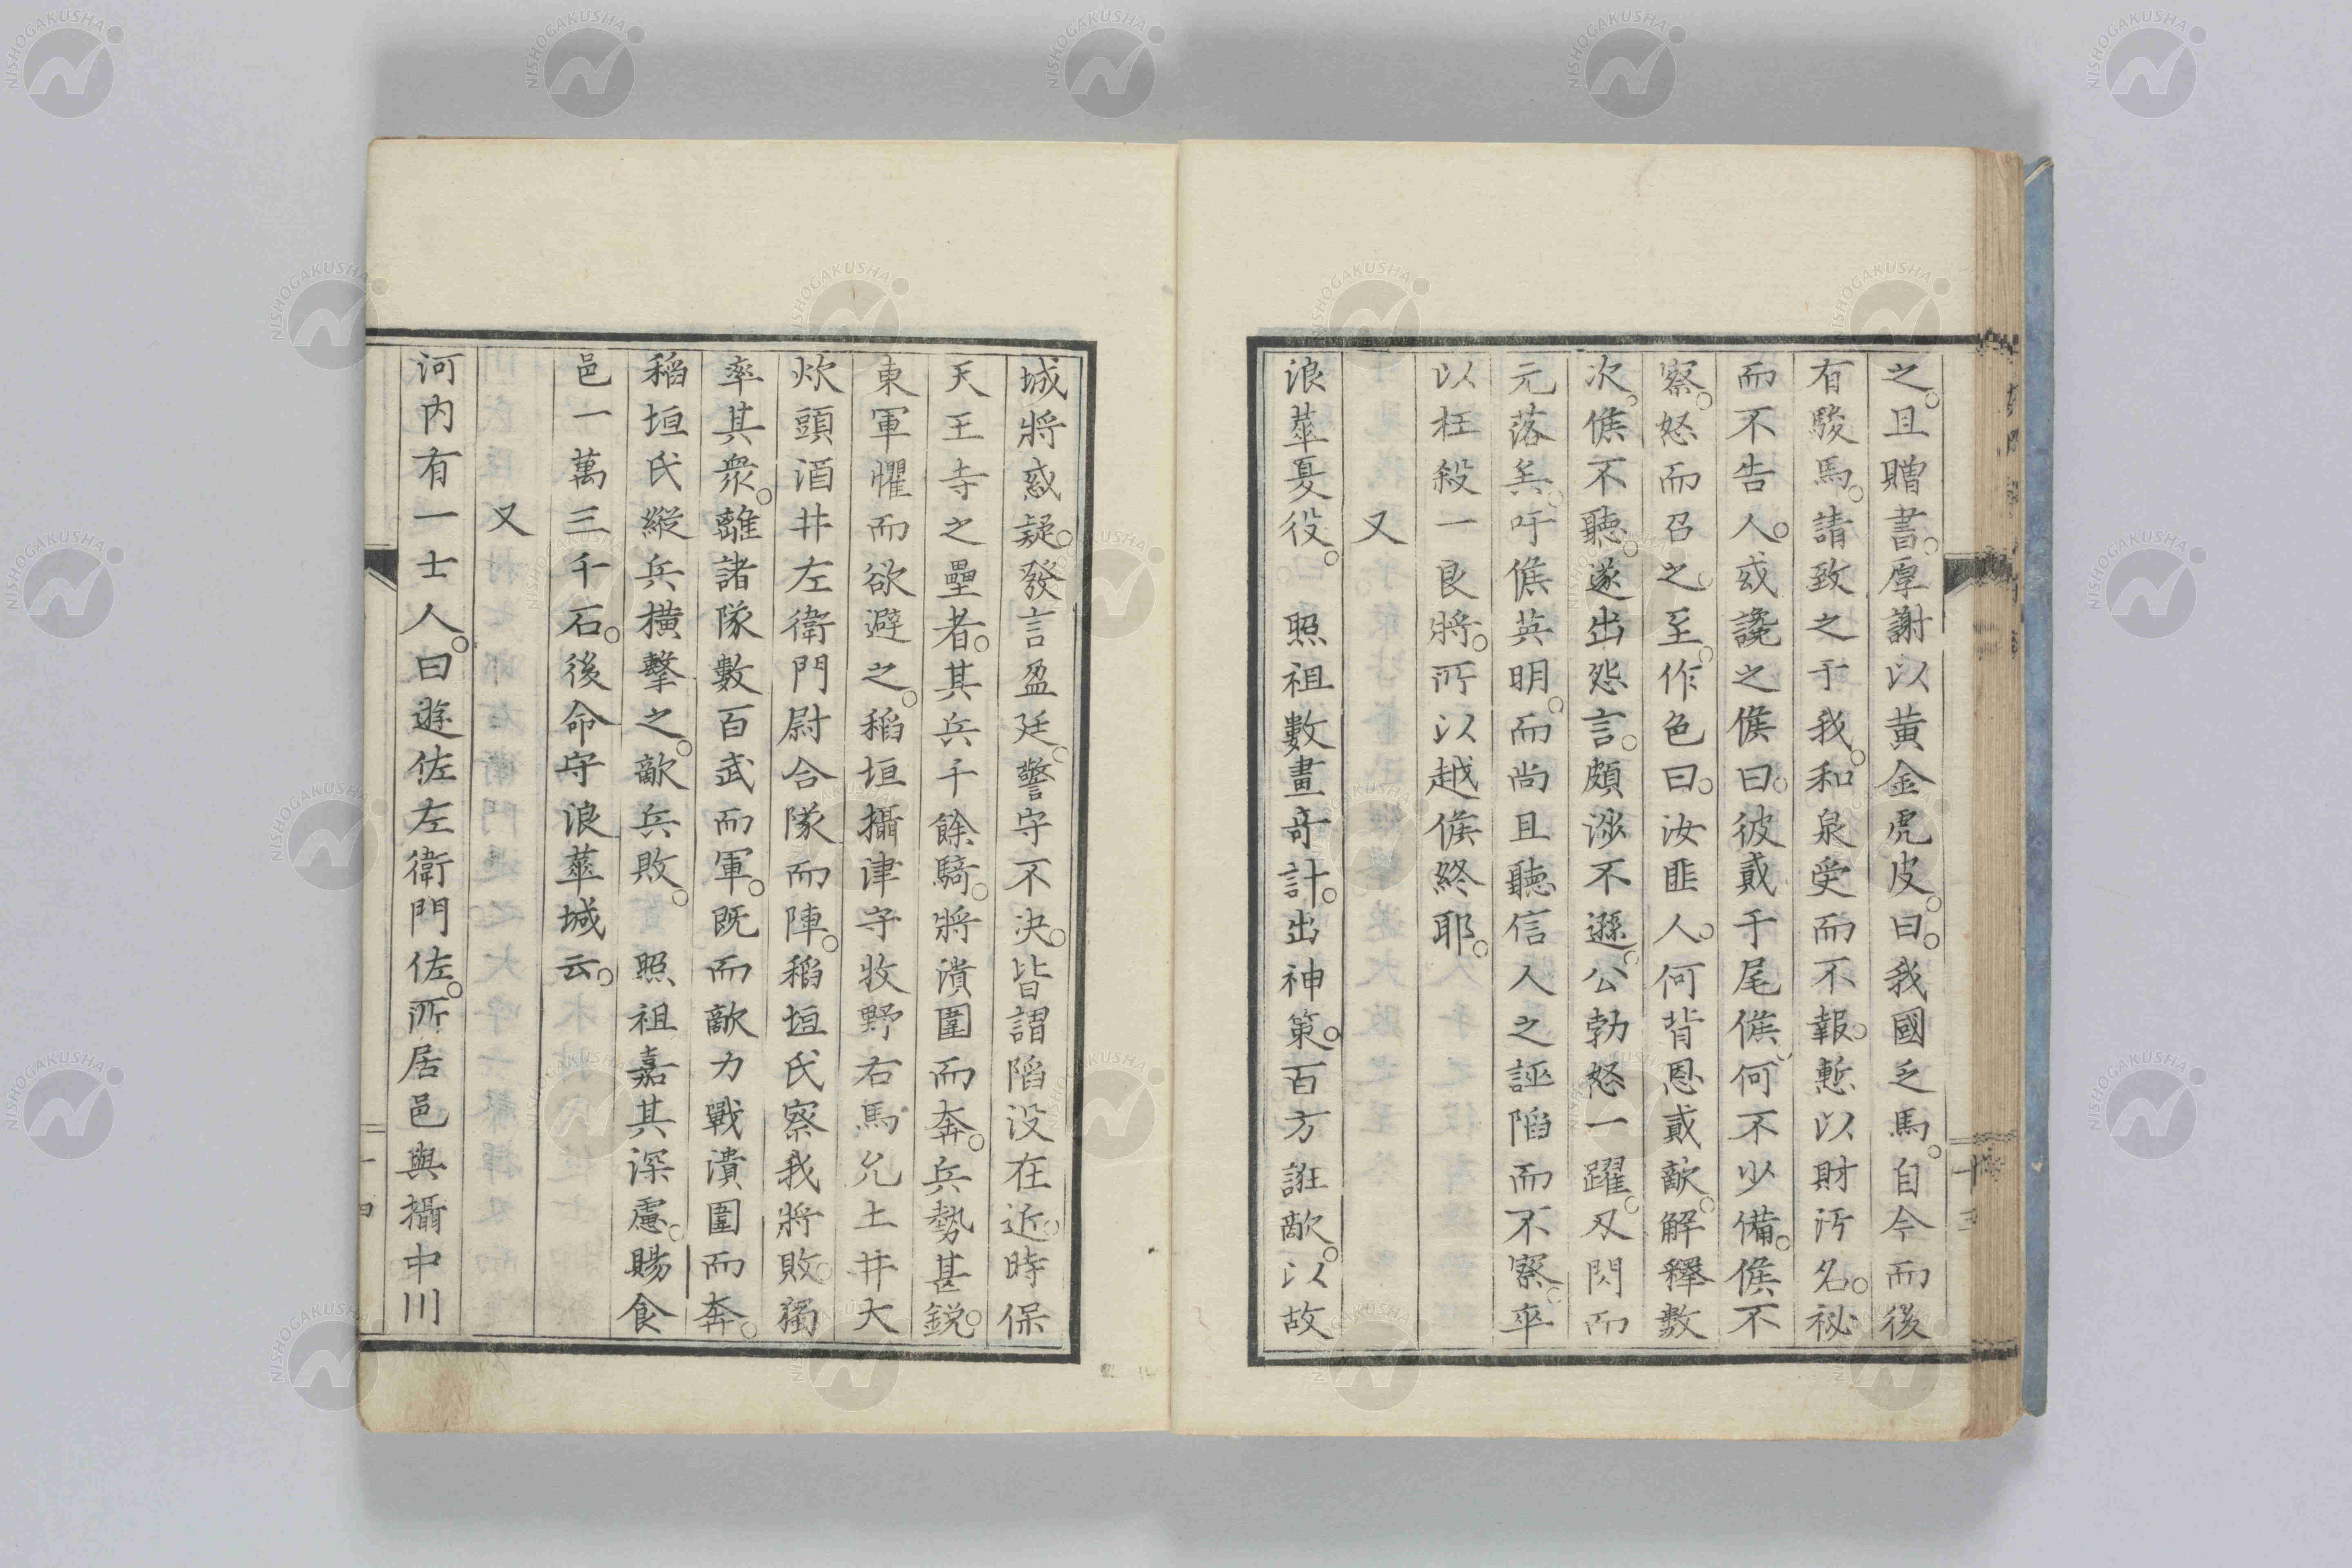 之。且贈書。厚謝以黄金虎皮。曰。我國乏馬。自今而後
有駿馬。請致之于我。和泉受而不報。慙以財汚名。秘
而不告人。或讒之侯曰。彼貳于尾侯。何不少備。侯不
察。怒而召之。至。作色曰。汝匪人。何背恩貳敵。解釋數
次。侯不聽。遂出怨言。頗渉不遜。公勃怒一躍。刄閃而
元落矣。吁侯英明。而尚且聽信人之誣陷而不察。卒
以枉殺一良將。所以越侯終耶。
又
浪華夏役。照祖數畫奇計。出神策。百方誑敵。以故
城將惑疑。發言盈廷。警守不決。皆謂陷没在近。時保
天王寺之壘者。其兵千餘騎。將潰圍而奔。兵勢甚鋭。
東軍懼而欲避之。稻垣攝津守牧野右馬允土井大
炊頭酒井左衛門尉合隊而陣。稻垣氏察我將敗。獨
率其衆。離諸隊數百武而軍。既而敵力戰潰圍而奔。
稻垣氏縱兵横擊之。敵兵敗。照祖嘉其深慮。賜食
邑一萬三千石。後命守浪華城云。
又
河内有一士人。曰遊佐左衛門佐。所居邑與攝中川
十三
十四
NISHOGAKUSHA